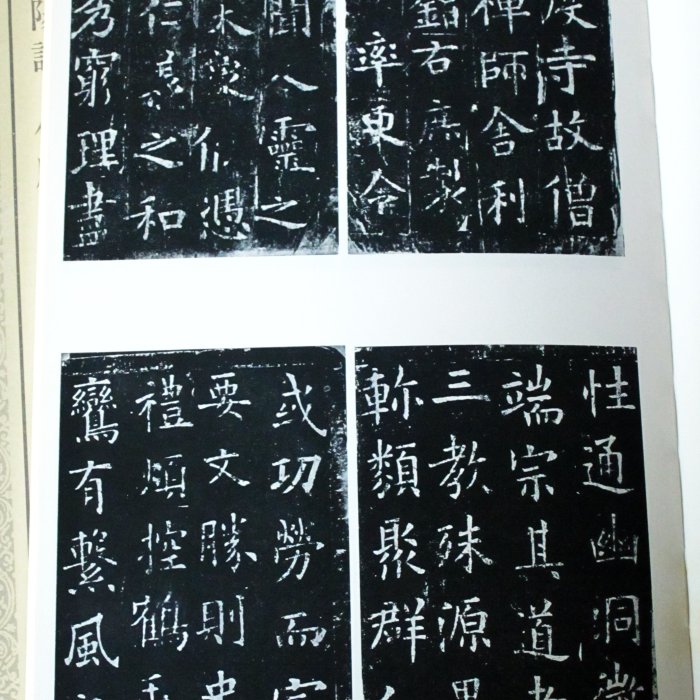 度寺故僧
禪師舍利
銘右庶製
率更令
聞八靈之
仁之和
秀窮理盡
性通幽洞微
端宗其道
三教殊源
軫類聚群
或功勞而
要文勝則史
禮煩控鶴
鸞有繫風